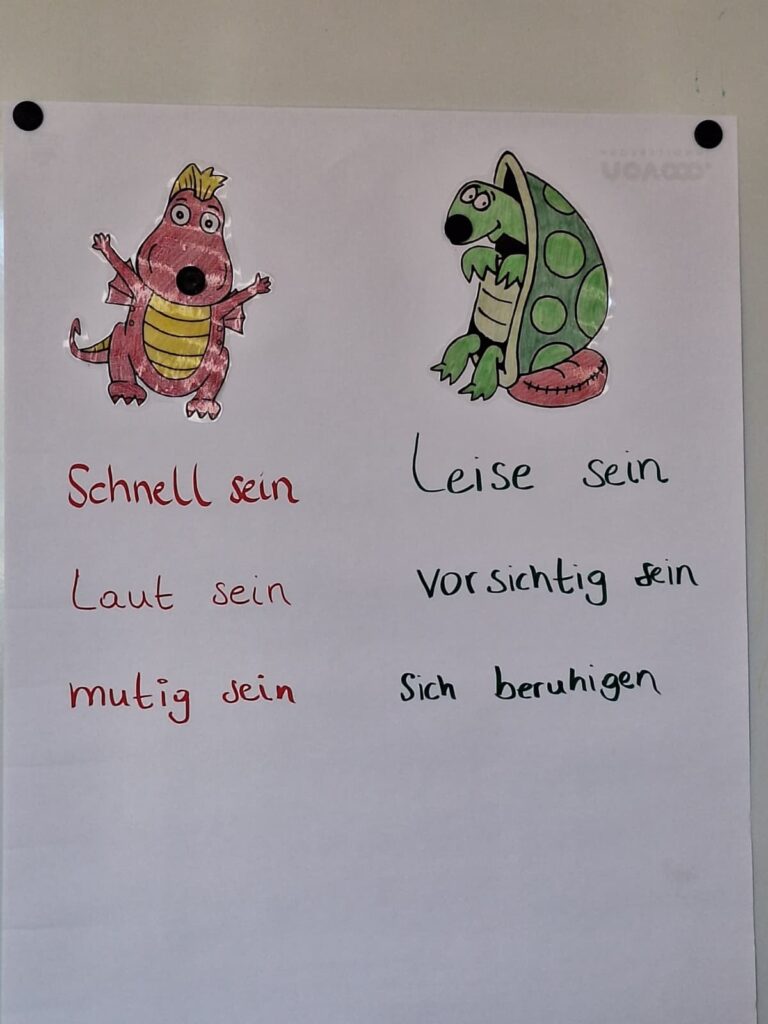 Schnell sein
Laut sein
mutig sein
Leise sein
vorsichtig sein
Sich beruhigen